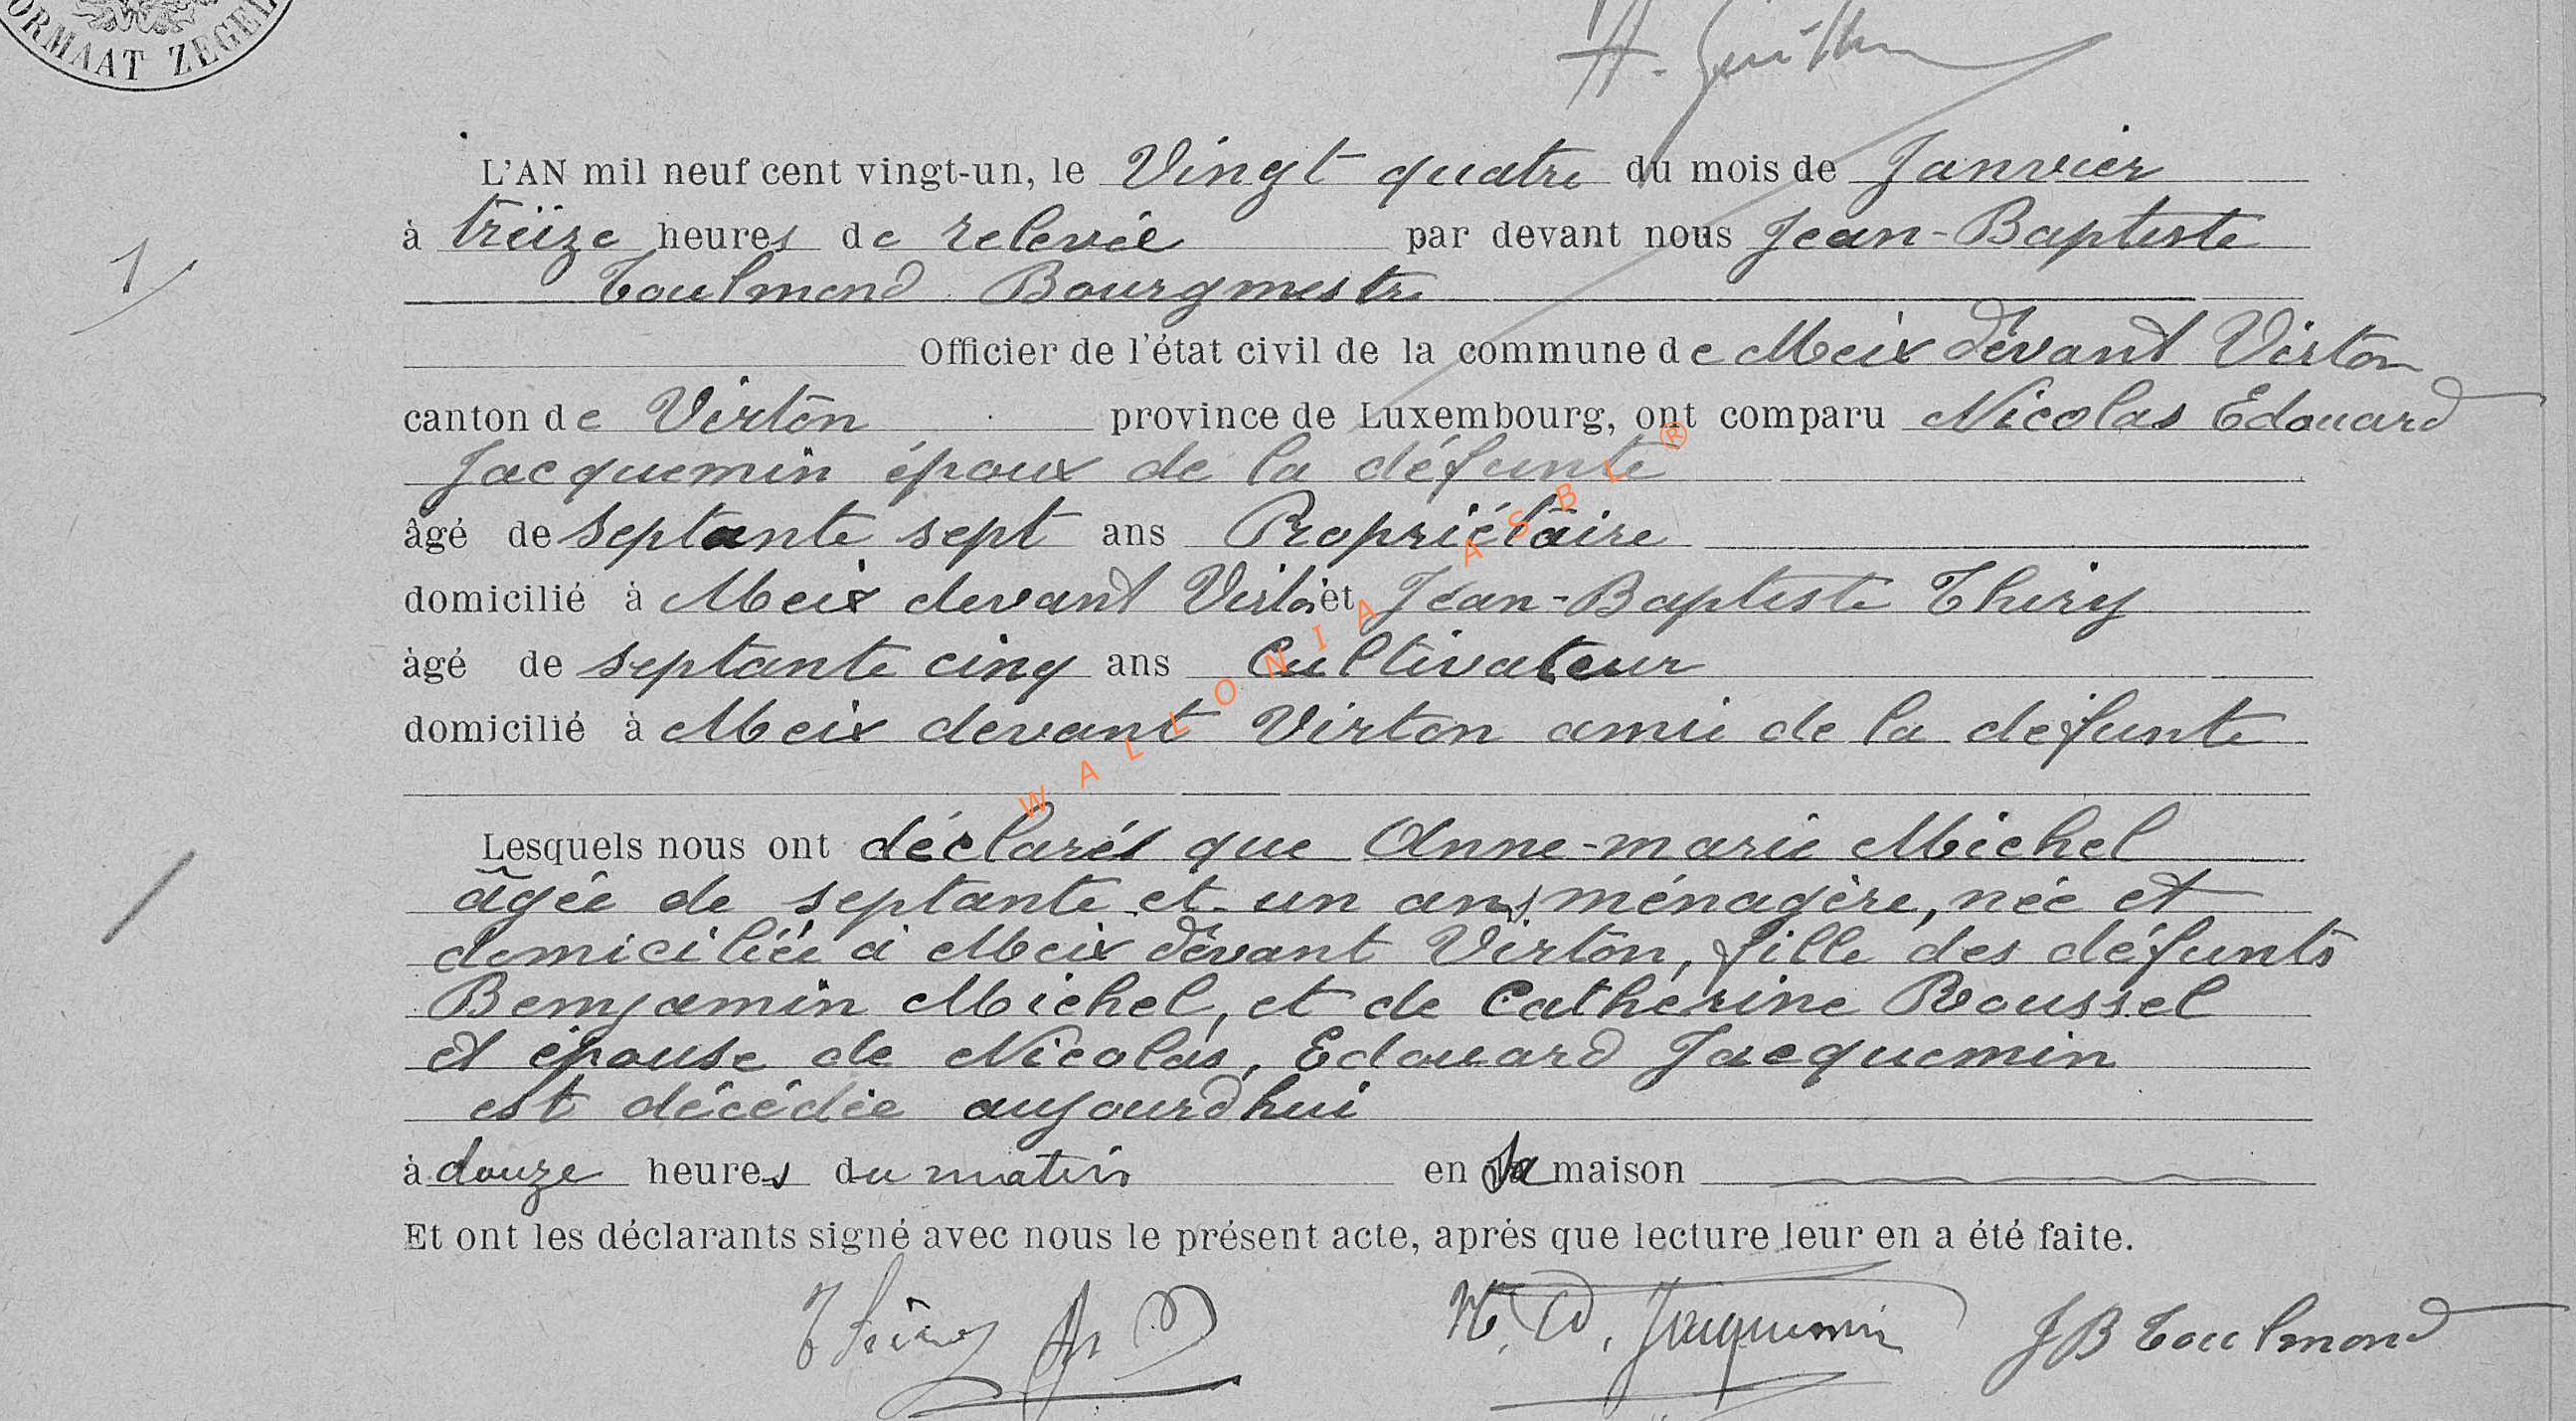 ORMAAT ZEGEL
L'AN mil neuf cent vingt-un, le Vingt quatre du mois de Janvier
à treize heures de relevée par devant nous Jean-Baptiste
Toulmond Bourgmestre
Officier de l'état civil de la commune de Meix devant Virton
canton de Virton province de Luxembourg, ont comparu Nicolas Edouard
Jacquemin époux de la défunte
âgé de septante sept ans Propriétaire
domicilié à Meix devant Virton et Jean-Baptiste Thiry
âgé de septante cinq ans Cultivateur
domicilié à Meix devant Virton amie de la défunte
WALLONIA ASBL ®
Lesquels nous ont déclarés que Anne-marie Michel
âgée de septante et un ans ménagère, née et
domiciliée à Meix devant Virton, fille des défunts
Benjamin Michel, et de Catherine Roussel
et épouse de Nicolas, Edouard Jacquemin
est décédée aujourd'hui
à douze heures du matin en sa maison
Et ont les déclarants signé avec nous le présent acte, après que lecture leur en a été faite.
Thiry JB N. Ed. Jacquemin JB Toulmond